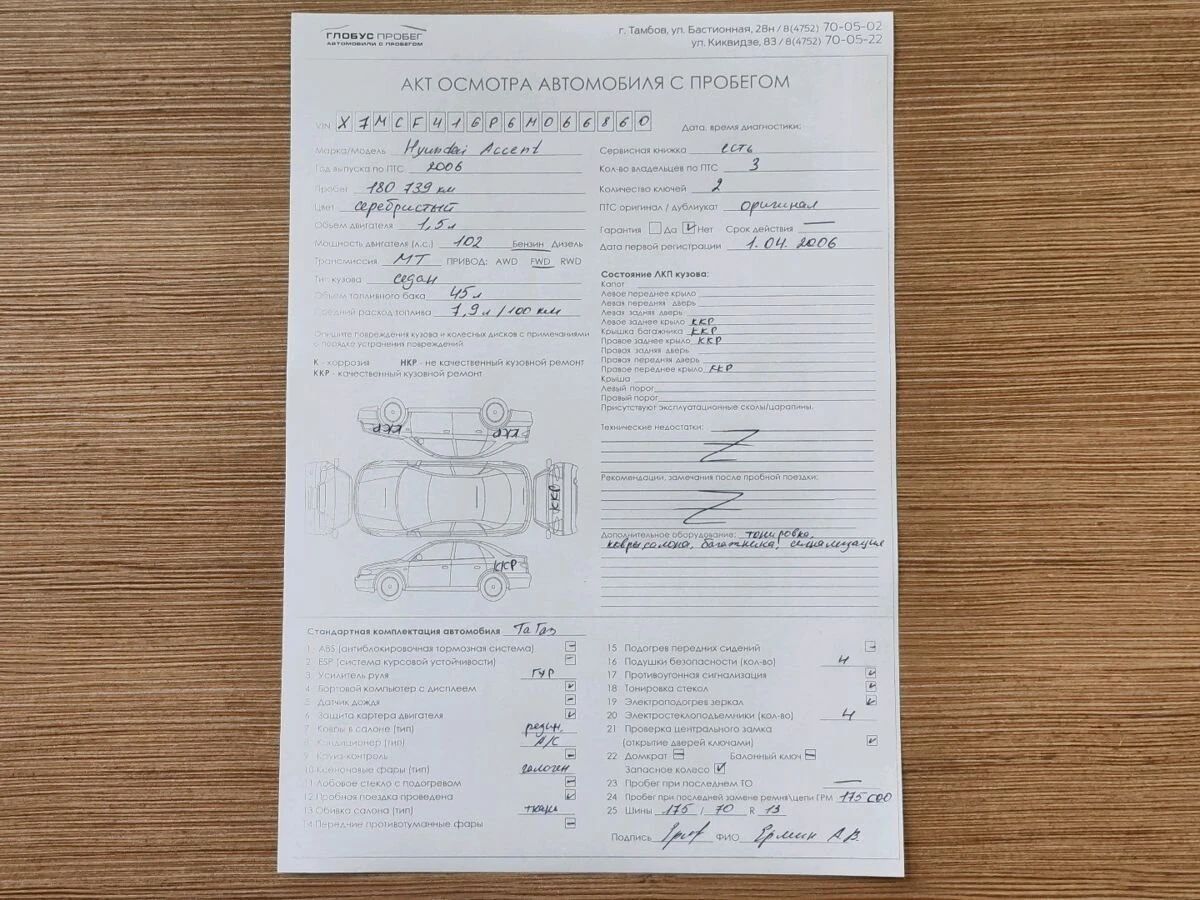 ГЛОБУС ПРОБЕГ
АВТОМОБИЛИ С ПРОБЕГОМ
г. Тамбов, ул. Бастионная, 28н / 8(4752) 70-05-02
ул. Киквидзе, 83 / 8(4752) 70-05-22
АКТ ОСМОТРА АВТОМОБИЛЯ С ПРОБЕГОМ
VIN X7MCF41GP6M066860
Дата, время диагностики:
Марка/Модель Hyundai Accent
Год выпуска по ПТС 2006
Пробег 180 739 км
Цвет серебристый
Объем двигателя 1,5л
Мощность двигателя (л.с.) 102 Бензин Дизель
Трансмиссия МТ ПРИВОД: AWD FWD RWD
Тип кузова седан
Объем топливного бака 45л
Средний расход топлива 7,9л/100 км
Опишите повреждения кузова и колесных дисков с примечаниями
о порядке устранения повреждений
К - коррозия НКР - не качественный кузовной ремонт
ККР - качественный кузовной ремонт
ККР ККР
ККР
ККР
Сервисная книжка есть
Кол-во владельцев по ПТС 3
Количество ключей 2
ПТС оригинал / дубликат оригинал
Гарантия Да Нет Срок действия —
Дата первой регистрации 1.04.2006
Состояние ЛКП кузова:
Капот
Левое переднее крыло
Левая передняя дверь
Левая задняя дверь
Левое заднее крыло ККР
Крышка багажника ККР
Правое заднее крыло ККР
Правая задняя дверь
Правая передняя дверь
Правое переднее крыло ККР
Крыша
Левый порог
Правый порог
Присутствуют эксплуатационные сколы/царапины.
Технические недостатки:
Рекомендации, замечания после пробной поездки:
Дополнительное оборудование: тонировка,
ковры салона, багажника, сигнализация
Стандартная комплектация автомобиля ТаГаз
1 ABS (антиблокировочная тормозная система) -
2 ESP (система курсовой устойчивости) -
3 Усилитель руля ГУР
4 Бортовой компьютер с дисплеем
5 Датчик дождя -
6 Защита картера двигателя
7 Ковры в салоне (тип) резин.
8 Кондиционер (тип) А/С
9 Круиз-контроль -
10 Ксеноновые фары (тип) галоген
11 Лобовое стекло с подогревом -
12 Пробная поездка проведена
13 Обивка салона (тип) ткань
14 Передние противотуманные фары -
15 Подогрев передних сидений -
16 Подушки безопасности (кол-во) 4
17 Противоугонная сигнализация
18 Тонировка стекол
19 Электроподогрев зеркал
20 Электростеклоподъемники (кол-во) 4
21 Проверка центрального замка
(открытие дверей ключами)
22 Домкрат - Балонный ключ -
Запасное колесо
23 Пробег при последнем ТО —
24 Пробег при последней замене ремня\цепи ГРМ 175 000
25 Шины 175 / 70 R 13
Подпись ФИО Ермин А.В.